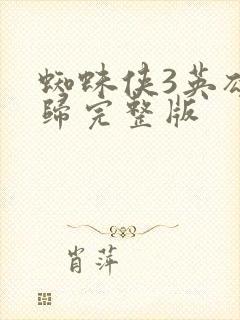 蜘蛛侠3英
归完整版
肖萍